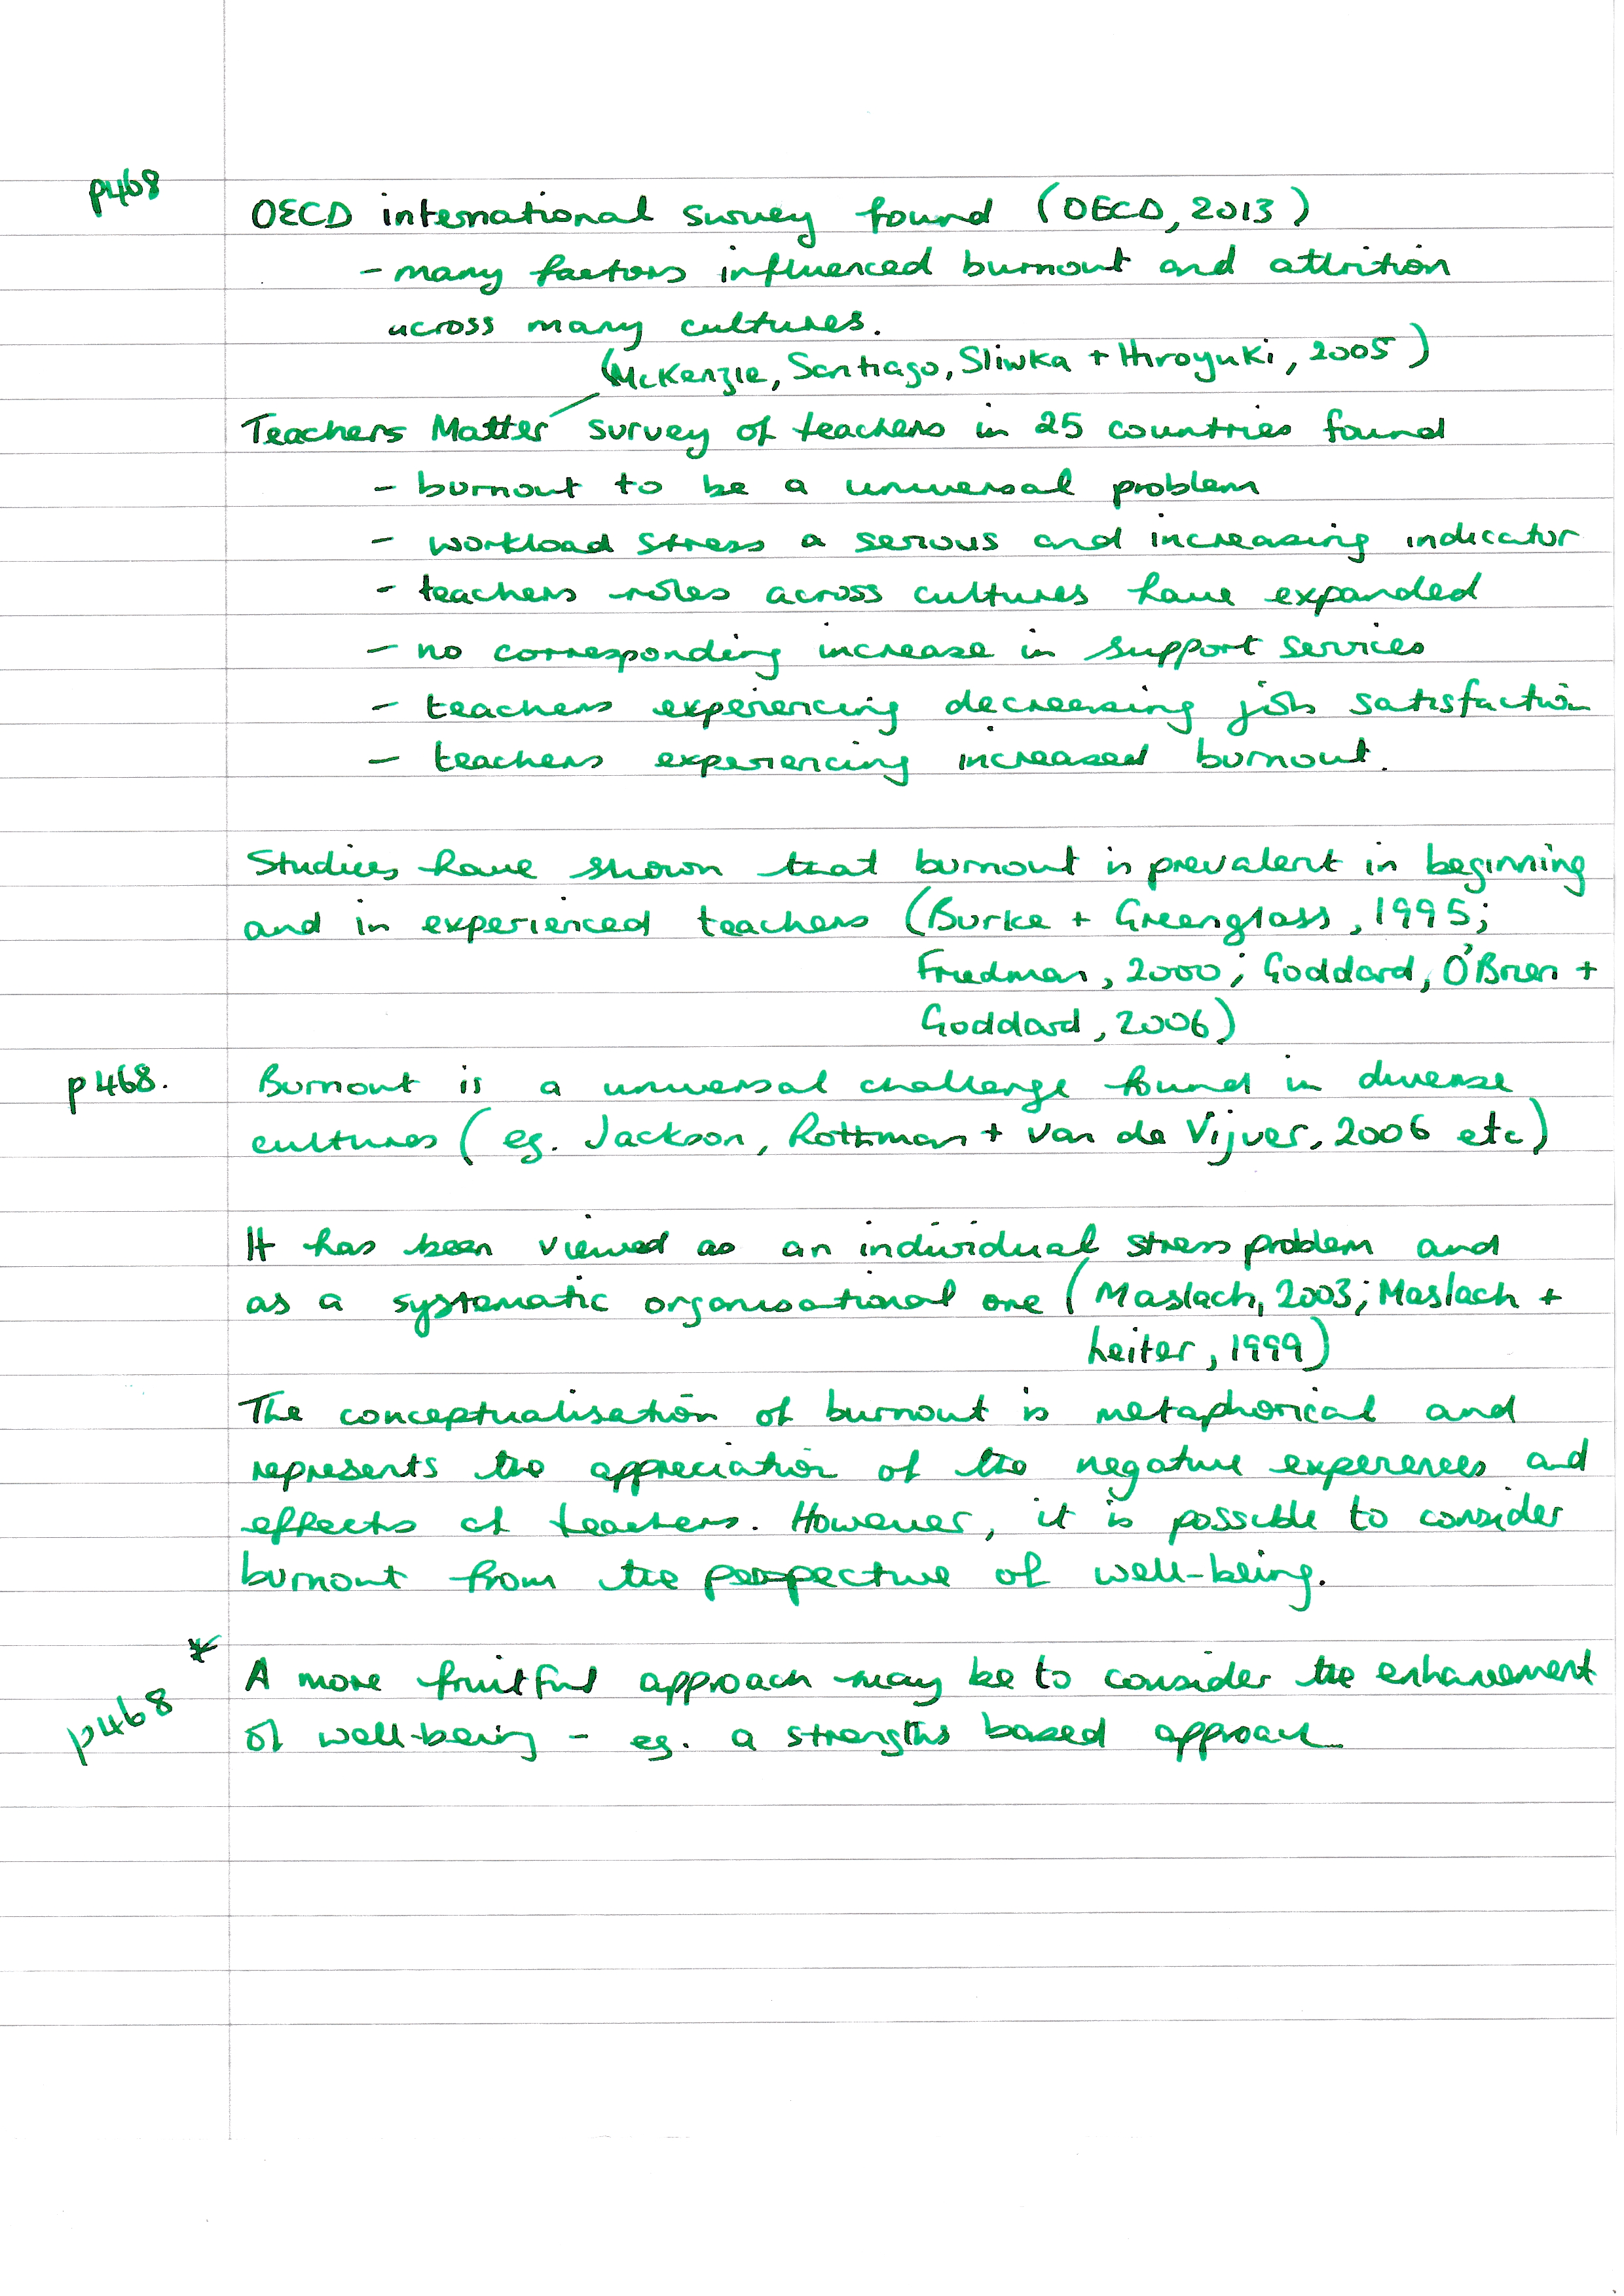 p468 OECD international survey found (OECD, 2013)
- many factors influenced burnout and attrition
across many cultures.
(McKenzie, Santiago, Sliwka + Hiroyuki, 2005)
Teachers Matter survey of teachers in 25 countries found
- burnout to be a universal problem
- workload stress a serious and increasing indicator
- teachers roles across cultures have expanded
- no corresponding increase in support services
- teachers experiencing decreasing job satisfaction
- teachers experiencing increased burnout.
Studies have shown that burnout is prevalent in beginning
and in experienced teachers (Burke + Greenglass, 1995;
Friedman, 2000; Goddard, O'Brien +
Goddard, 2006)
p468. Burnout is a universal challenge found in diverse
cultures (eg. Jackson, Rottman + Van de Vijver, 2006 etc)
It has been viewed as an individual stress problem and
as a systematic organisational one (Maslach, 2003; Maslach +
Leiter, 1999)
The conceptualisation of burnout is metaphorical and
represents the appreciation of the negative experiences and
effects of teachers. However, it is possible to consider
burnout from the perspective of well-being.
* p468 A more fruitful approach may be to consider the enhancement
of well-being - eg. a strengths based approach